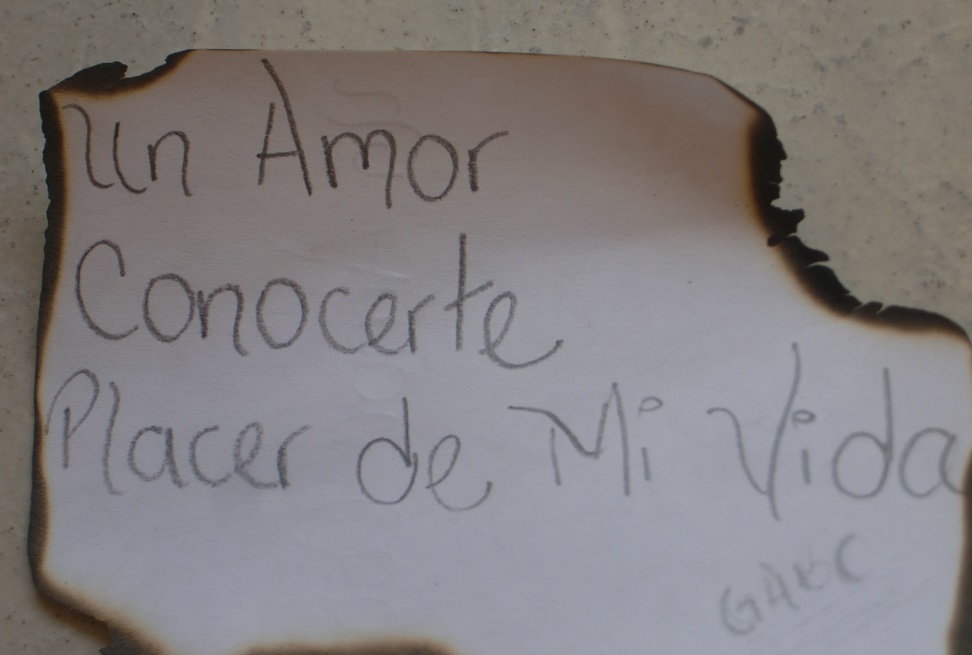 Un Amor
Conocerte
Placer de Mi Vida